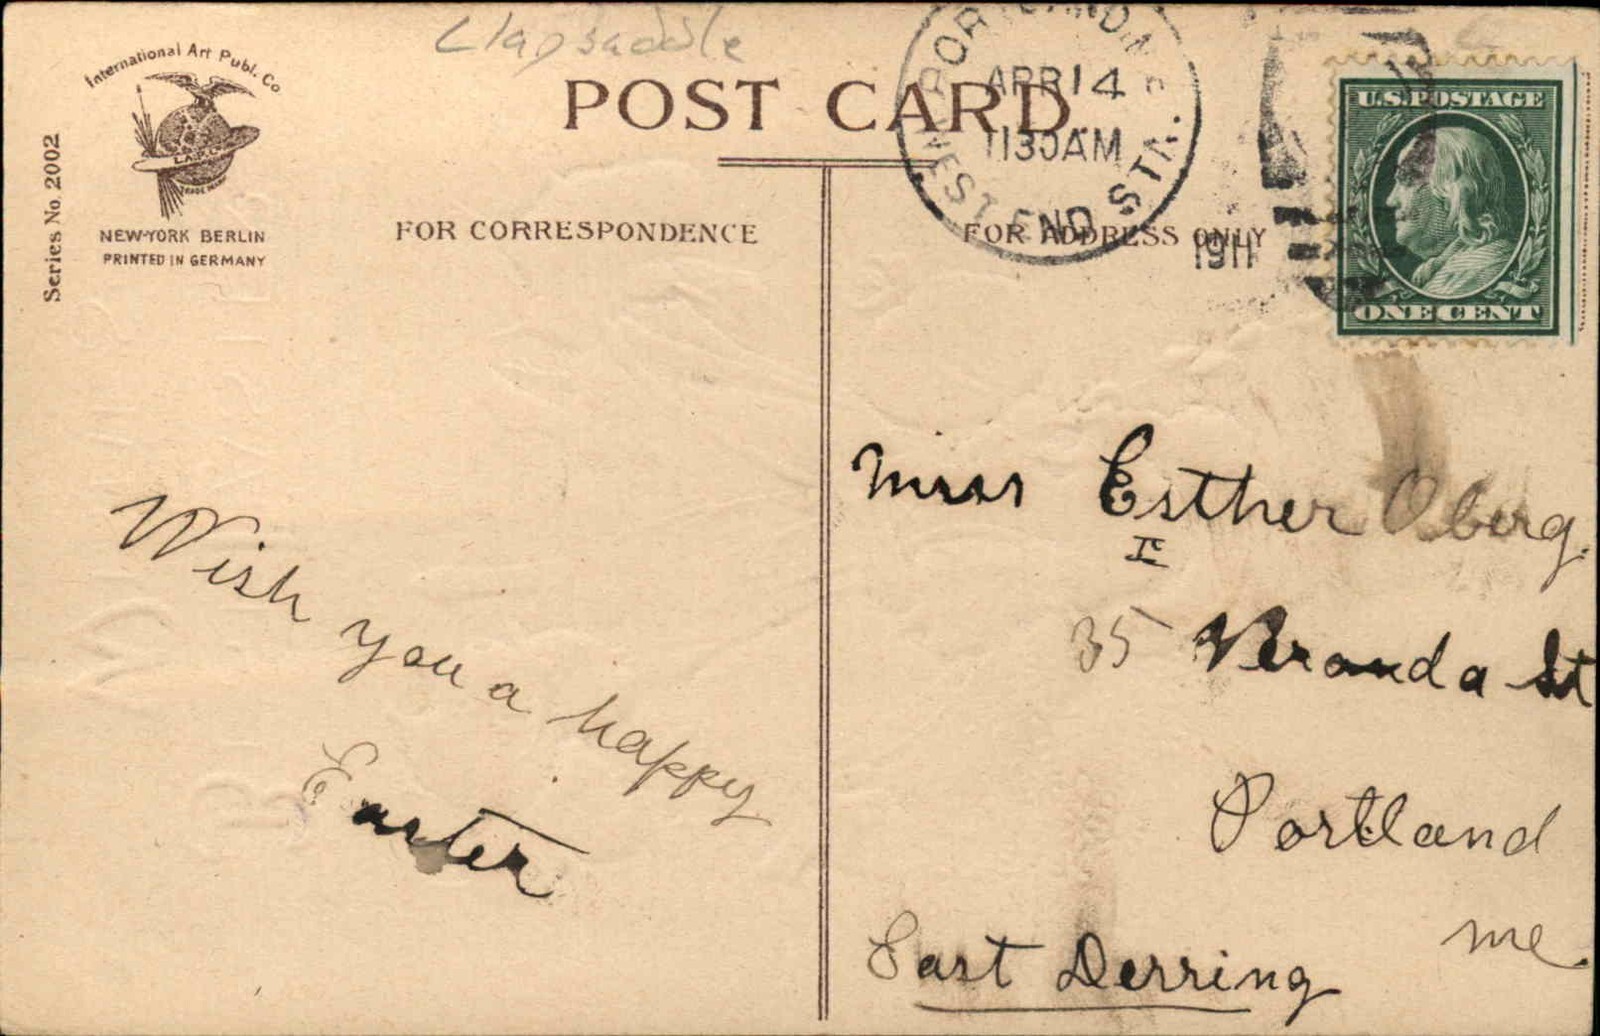 Clapsaddle
International Art Publ. Co
TRADE MARK
NEW-YORK BERLIN
PRINTED IN GERMANY
Series No. 2002
POST CARD
FOR CORRESPONDENCE
FOR ADDRESS ONLY
PORTLAND, ME
APR 14
1130AM
WEST END STA.
1911
U.S. POSTAGE
ONE CENT
Wish you a happy
Easter
Miss Esther Oberg.
35 Veranda St
Portland
Me.
East Derring